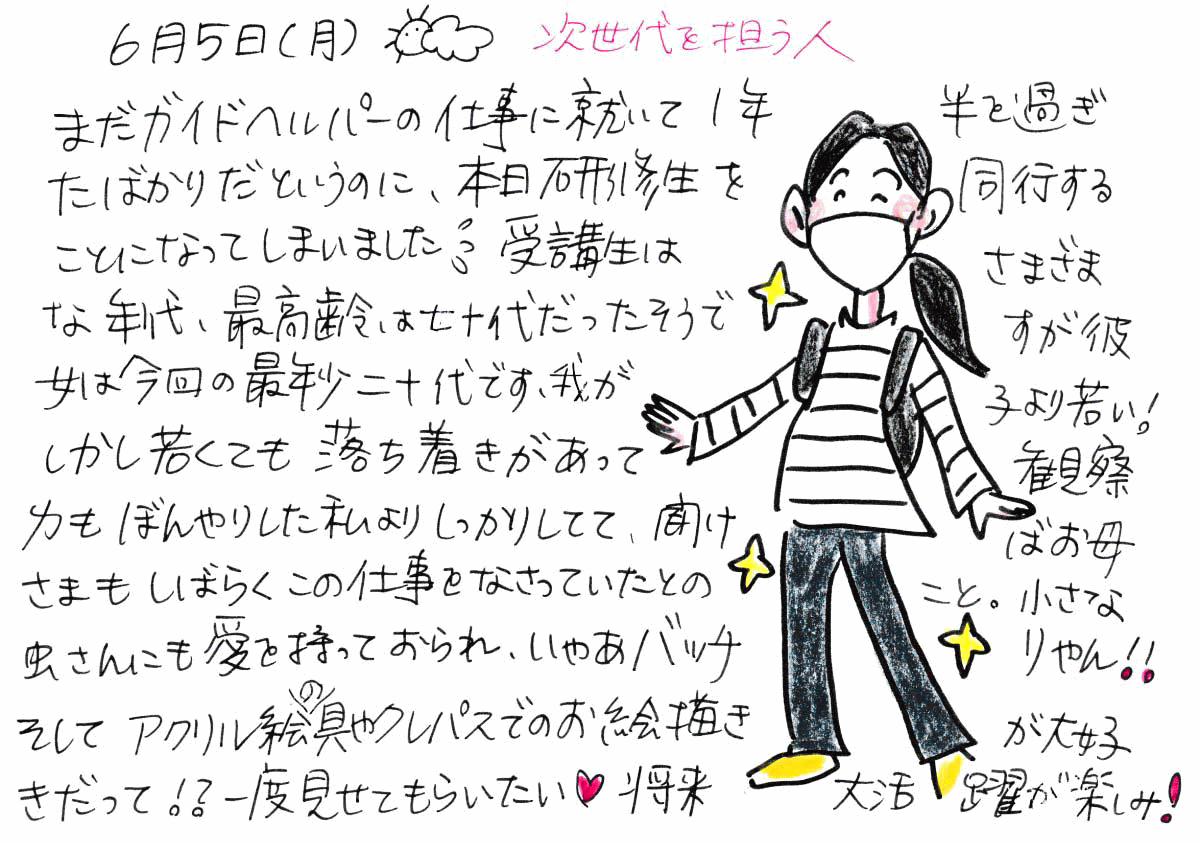 6月5日(月) 次世代を担う人
まだガイドヘルパーの仕事に就いて1年半を過ぎ
たばかりだというのに、本日研修生を同行する
ことになってしまいました 受講生はさまざま
な年代、最高齢は七十代だったそうですが彼
女は今回の最年少二十代です、我が子より若い!
しかし若くても落ち着きがあって観察
力もぼんやりした私よりしっかりしてて、聞けばお母
さまもしばらくこの仕事をなさっていたとのこと。小さな
虫さんにも愛を持っておられ、いやあバッチリやん!!
そしてアクリル絵の具やクレパスでのお絵描きが大好
きだって!?一度見せてもらいたい♥将来大活躍が楽しみ!